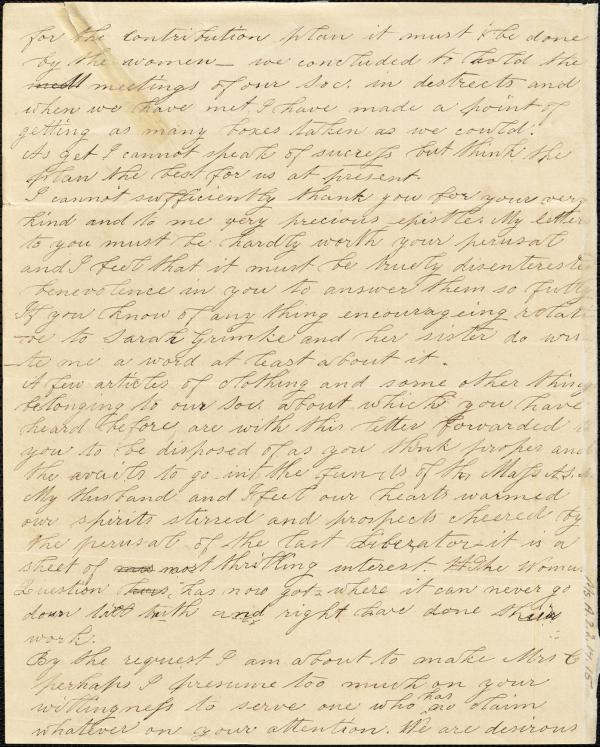 for the contribution plan it must be done
by the women – we concluded to hold the
meetings of our Soc. in destrects and
when we have met I have made a point of
getting as many boxes taken as we could.
As yet I cannot speak of success but think the
plan the best for us at present.
I cannot sufficiently thank you for your very
kind and to me very precious epistle. My letter
to you must be hardly worth your perusal
and I feel that it must be truely disenterested
benevolence in you to answer them so fully
If you know of any thing encourageing relati
-ve to Sarah Grimke and her sister do wri
-te me a word at least about it.
A few articles of clothing and some other things
belonging to our Soc. about which you have
heard before, are with this letter forwarded to
you to be disposed of as you think proper and
the avails to go int the funds of the Mass A.S.
My Husband and I feel our hearts warmed
our spirits stirred and prospects cheered by
the perusal of the last Liberator – it is a
sheet of most thrilling interest. The Woman
Question has now got where it can never go
down till truth and right have done their
work.
By the request I am about to make Mrs C
perhaps I presume too much on your
willingness to serve one who has no claim
whatever on your attention. We are desirous
Ms.A.9.2.14.15